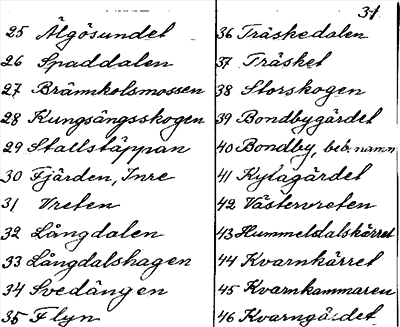 31
25 Älgösundet
26 Spaddalen
27 Brännkolsmossen
28 Kungsängsskogen
29 Stallstäppan
30 Fjärden, Inre
31 Vreten
32 Långdalen
33 Långdalshagen
34 Svedängen
35 Flyn
36 Träskedalen
37 Träsket
38 Storskogen
39 Bondbygärdet
40 Bondby, beb. namn
41 Kylagärdet
42 Västervreten
43 Hummelsdalskärret
44 Kvarnkärret
45 Kvarnkammaren
46 Kvarngärdet